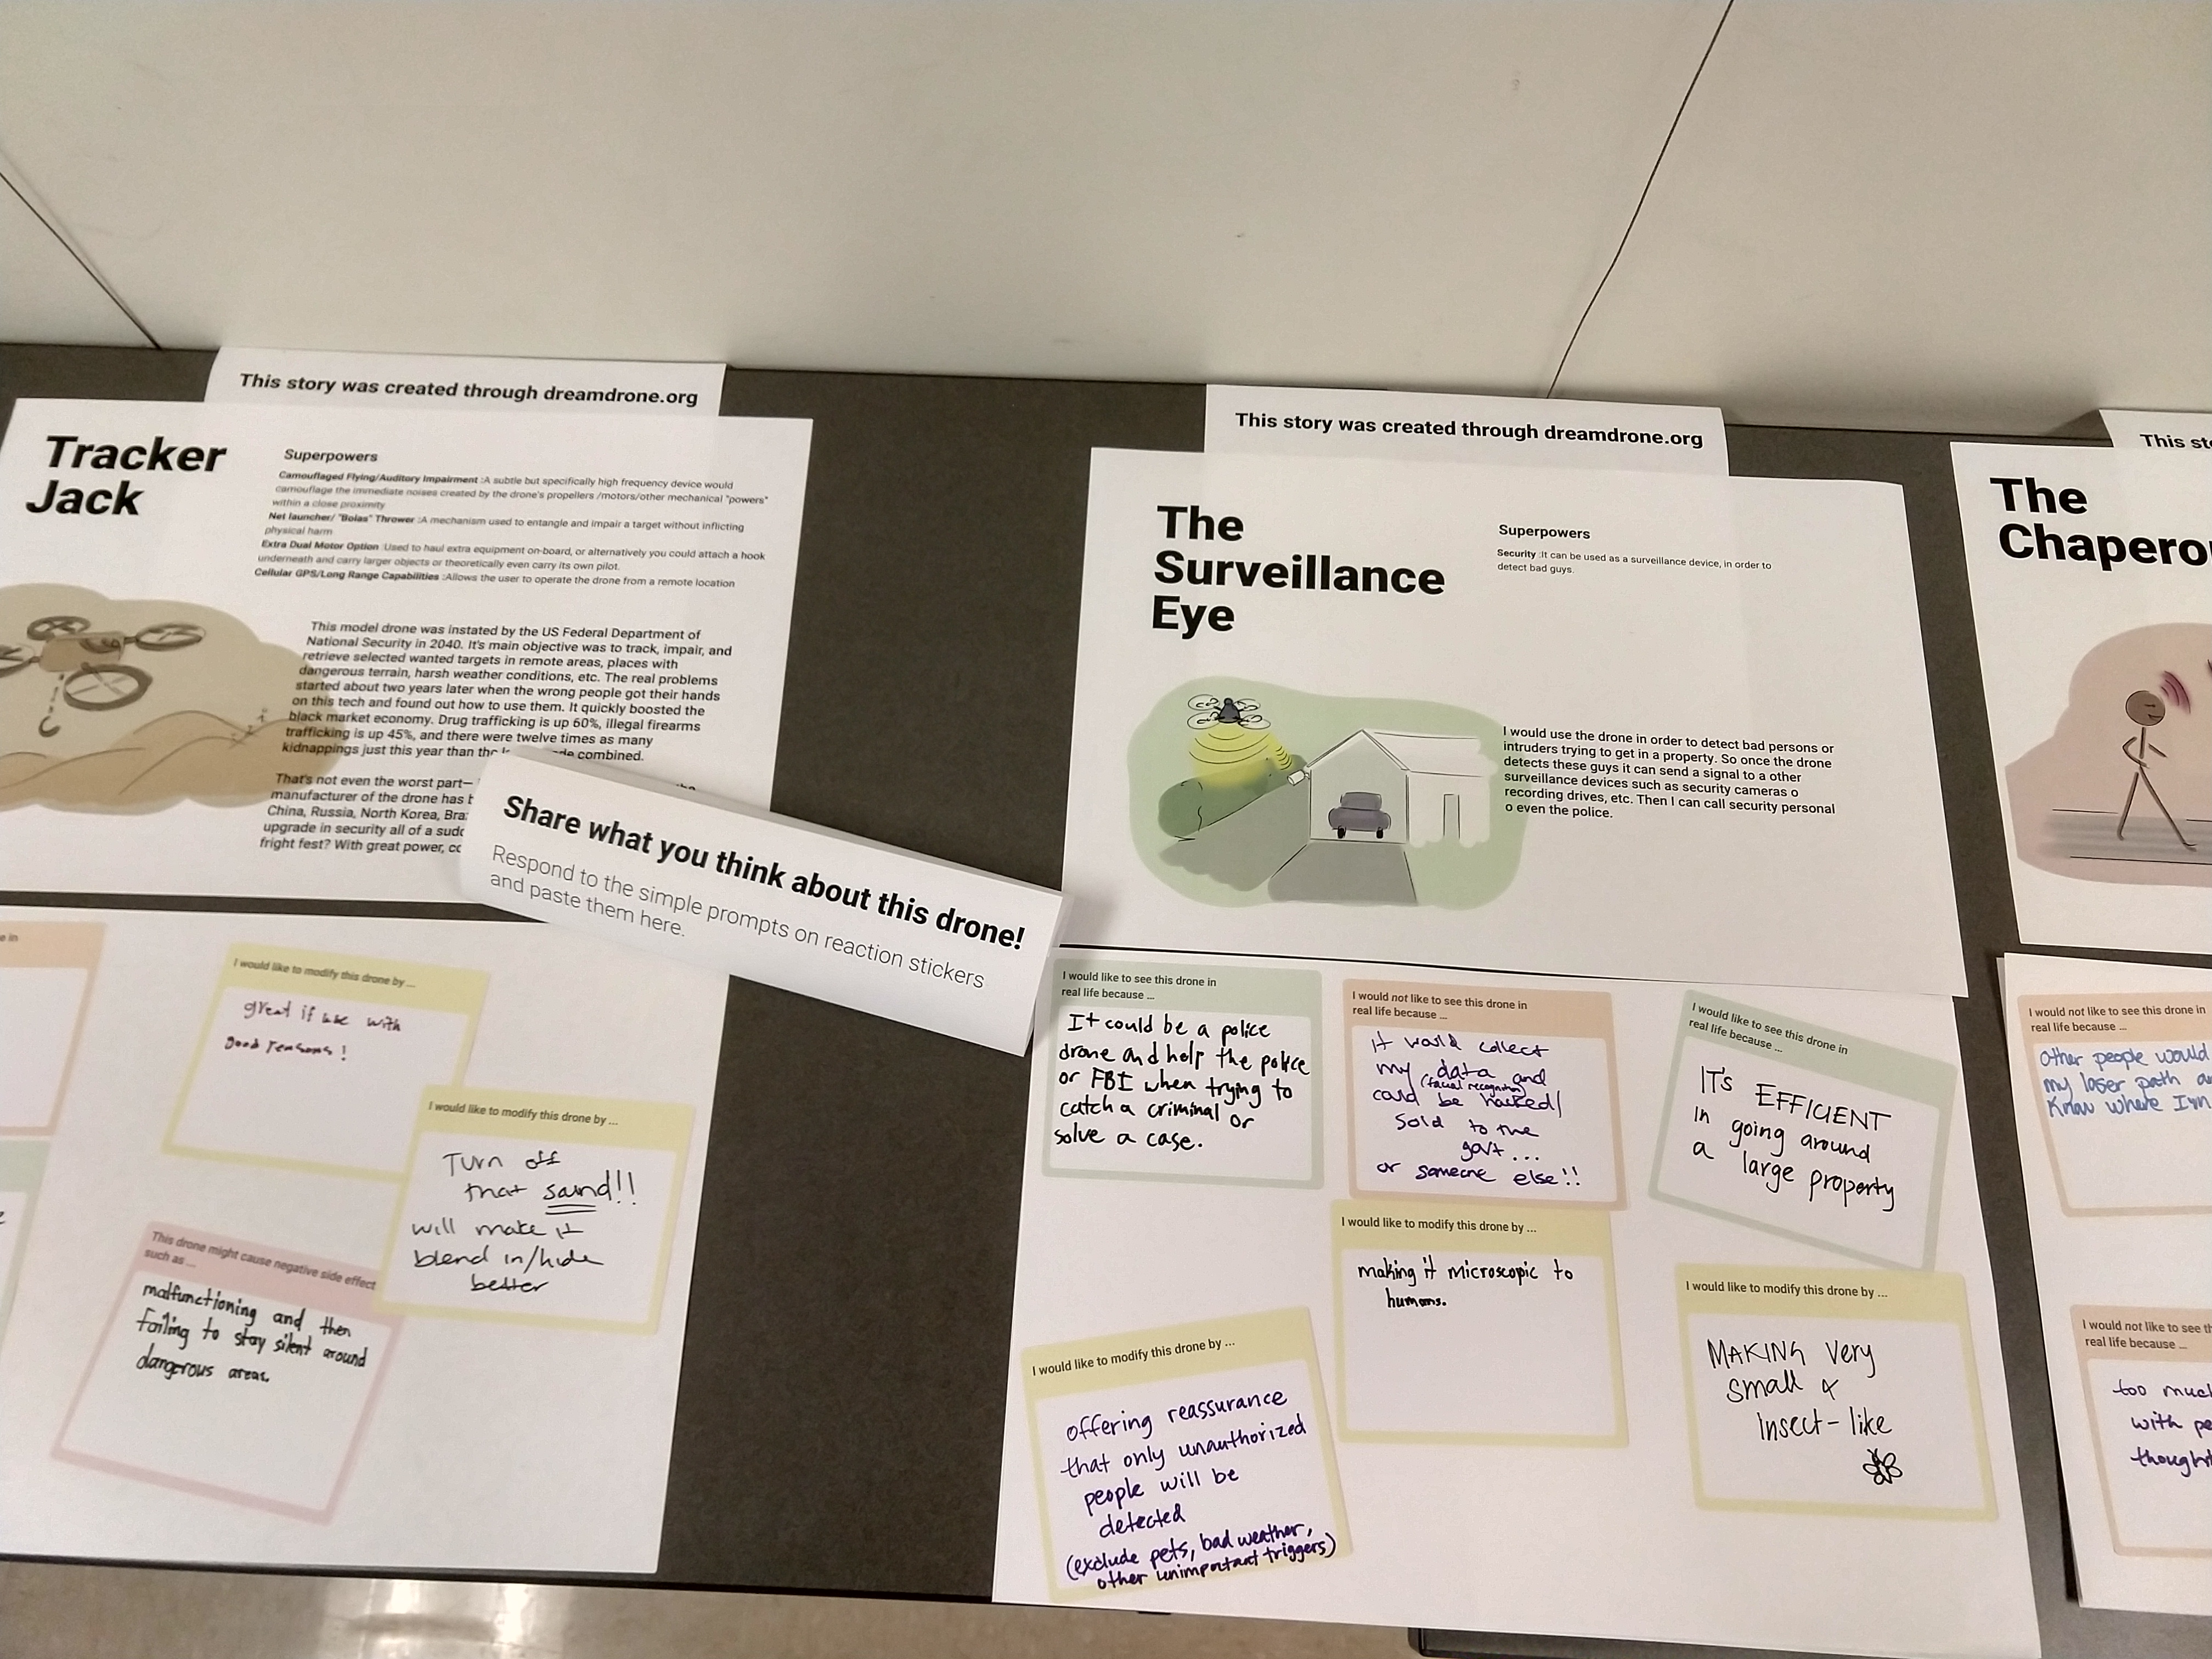 This story was created through dreamdrone.org
Tracker
Jack
Superpowers
Camouflaged Flying/Auditory Impairment :A subtle but specifically high frequency device would
camouflage the immediate noises created by the drone's propellers /motors/other mechanical "powers"
within a close proximity
Net launcher/ "Bolas" Thrower :A mechanism used to entangle and impair a target without inflicting
physical harm
Extra Dual Motor Option :Used to haul extra equipment on-board, or alternatively you could attach a hook
underneath and carry larger objects or theoretically even carry its own pilot.
Cellular GPS/Long Range Capabilities :Allows the user to operate the drone from a remote location
This model drone was instated by the US Federal Department of
National Security in 2040. It's main objective was to track, impair, and
retrieve selected wanted targets in remote areas, places with
dangerous terrain, harsh weather conditions, etc. The real problems
started about two years later when the wrong people got their hands
on this tech and found out how to use them. It quickly boosted the
black market economy. Drug trafficking is up 60%, illegal firearms
trafficking is up 45%, and there were twelve times as many
kidnappings just this year than the combined.
That's not even the worst part—
manufacturer of the drone has
China, Russia, North Korea,
upgrade in security all of a
fright fest? With great power,
Share what you think about this drone!
Respond to the simple prompts on reaction stickers
and paste them here.
I would like to modify this drone by ...
great if use with
good reasons!
I would like to modify this drone by ...
Turn off
that sound!!
will make it
blend in/hide
better
This drone might cause negative side effect
such as ...
malfunctioning and then
failing to stay silent around
dangerous areas.
This story was created through dreamdrone.org
The
Surveillance
Eye
Superpowers
Security :It can be used as a surveillance device, in order to
detect bad guys.
I would use the drone in order to detect bad persons or
intruders trying to get in a property. So once the drone
detects these guys it can send a signal to a other
surveillance devices such as security cameras o
recording drives, etc. Then I can call security personal
o even the police.
I would like to see this drone in
real life because ...
It could be a police
drone and help the police
or FBI when trying to
catch a criminal or
solve a case.
I would not like to see this drone in
real life because ...
it would collect
my data and
(facial recognition)
could be hacked/
sold to the
gov't ...
or someone else!!
I would like to see this drone in
real life because ...
IT's EFFICIENT
in going around
a large property
I would like to modify this drone by ...
making it microscopic to
humans.
I would like to modify this drone by ...
offering reassurance
that only unauthorized
people will be
detected
(exclude pets, bad weather,
other unimportant triggers)
I would like to modify this drone by ...
MAKING very
small &
insect-like
This
The
I would not like to see this drone in
real life because ...
Other people would
my laser path
Know where I'm
I would not like to see
real life because ...
too much
with